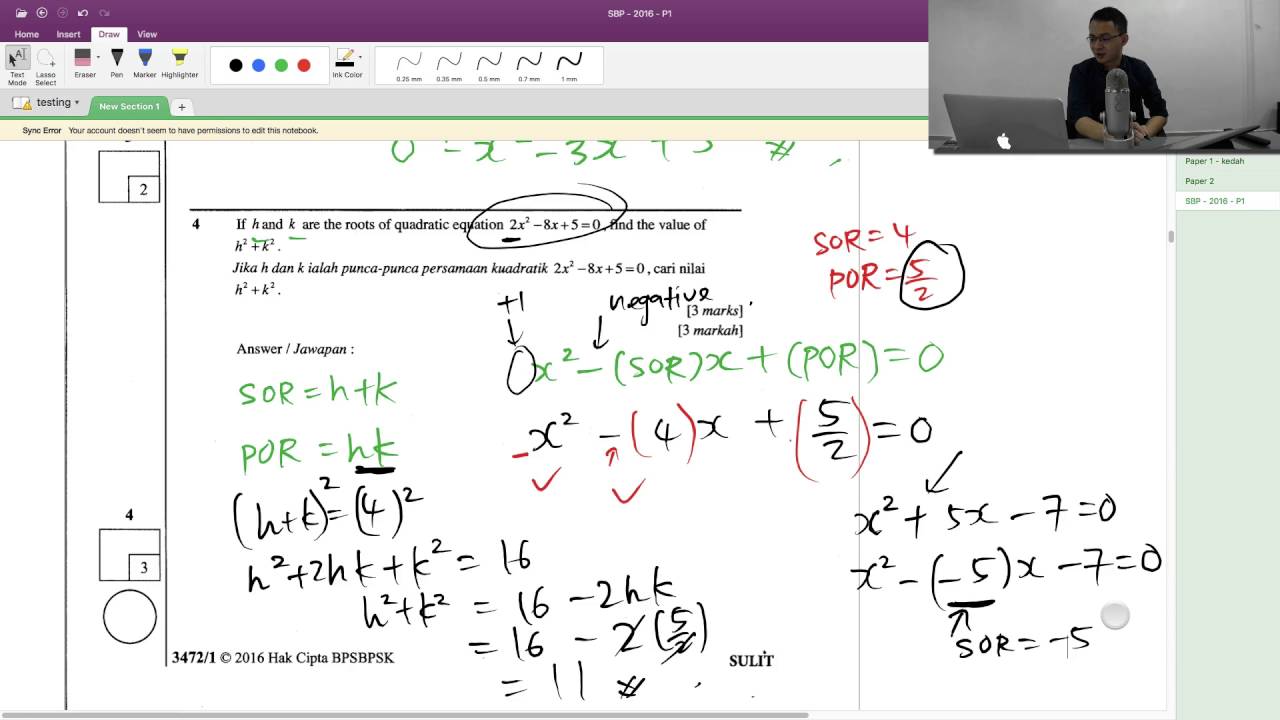 SBP - 2016 - P1
Home Insert Draw View
Text Mode
Lasso Select
Eraser Pen Marker Highlighter
Ink Color
0.25 mm 0.35 mm 0.5 mm 0.7 mm 1 mm
testing New Section 1 +
Sync Error Your account doesn't seem to have permissions to edit this notebook.
Paper 1 - kedah
Paper 2
SBP - 2016 - P1
2
4 If h and k are the roots of quadratic equation 2x² − 8x + 5 = 0, find the value of
h² + k².
Jika h dan k ialah punca-punca persamaan kuadratik 2x² − 8x + 5 = 0, cari nilai
h² + k².
[3 marks]
[3 markah]
Answer / Jawapan :
SOR = 4
POR = 5/2
+1
negative
x² − (SOR)x + (POR) = 0
x² − (4)x + (5/2) = 0
SOR = h+k
POR = hk
(h+k)² = (4)²
h² + 2hk + k² = 16
h² + k² = 16 − 2hk
= 16 − 2(5/2)
= 11
x² + 5x − 7 = 0
x² − (−5)x − 7 = 0
SOR = −5
4
3
3472/1 © 2016 Hak Cipta BPSBPSK
SULIT